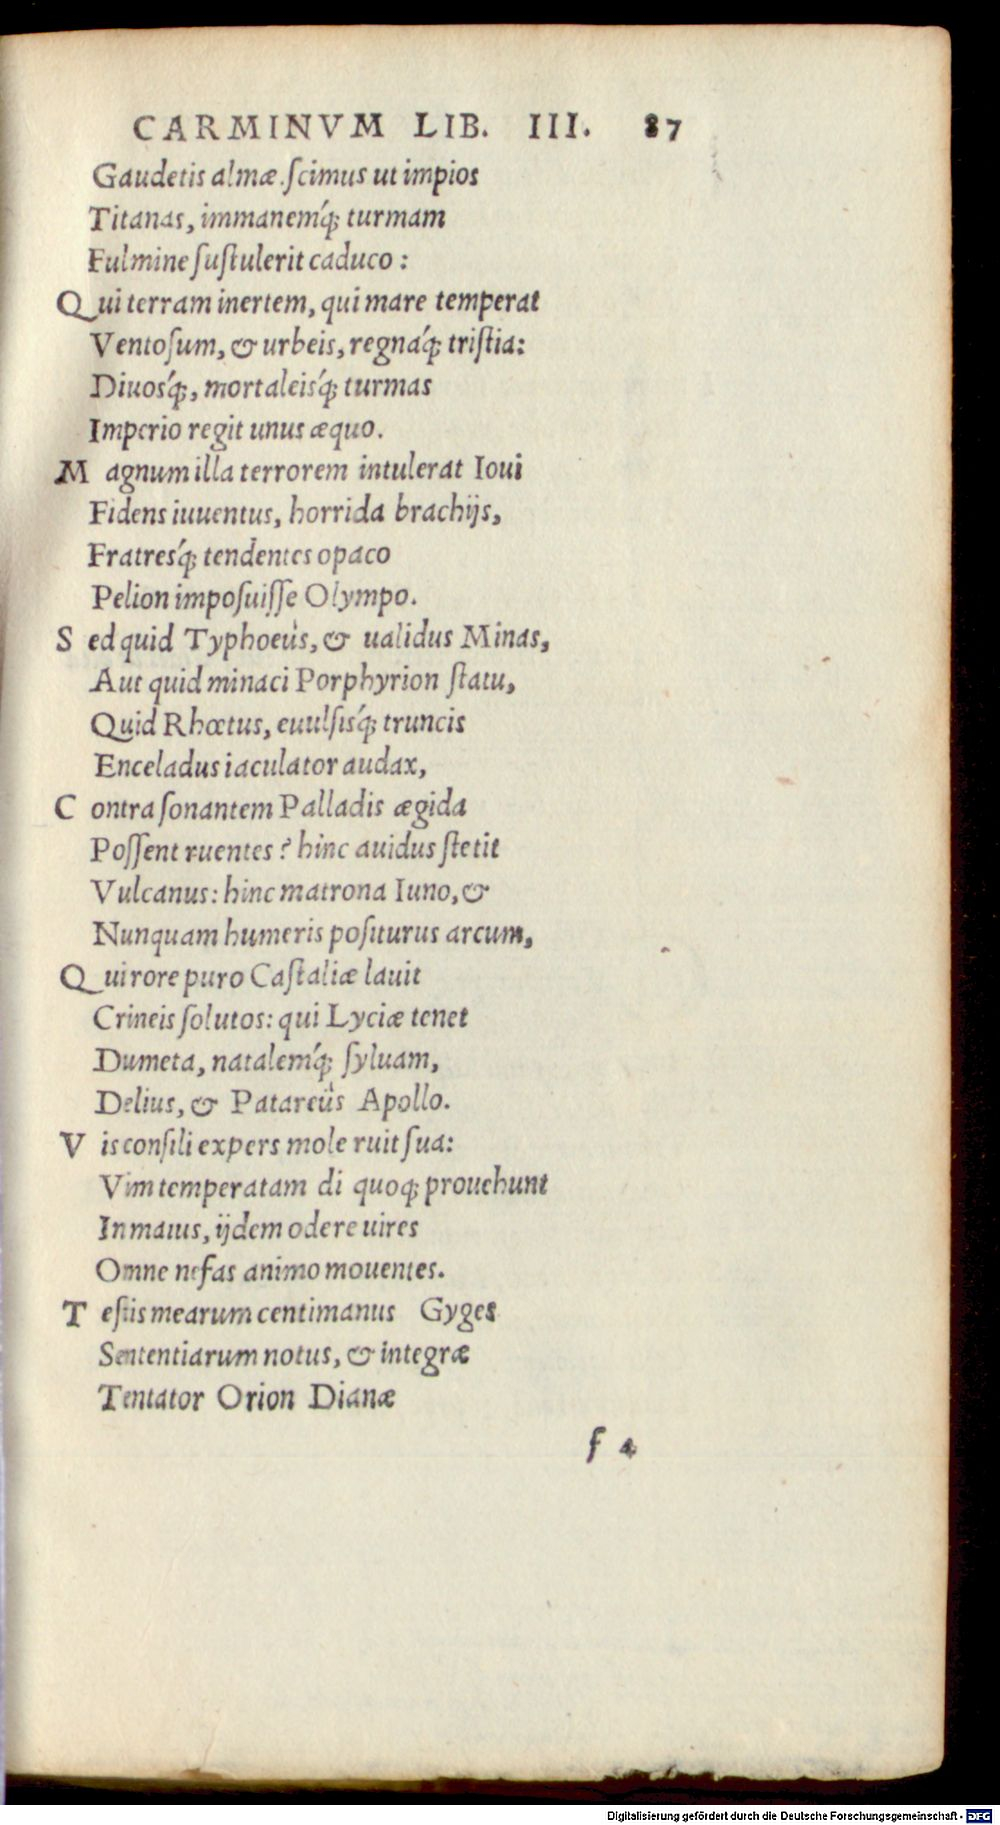 CARMINVM LIB. III. 87
Gaudetis almæ. ſcimus ut impios
Titanas, immanemq́; turmam
Fulmine ſuſtulerit caduco:
Qui terram inertem, qui mare temperat
Ventoſum, & urbeis, regnaq́; triſtia:
Diuosq́;, mortaleisq́; turmas
Imperio regit unus æquo.
M agnum illa terrorem intulerat Ioui
Fidens iuuentus, horrida brachijs,
Fratresq́; tendentes opaco
Pelion impoſuiſſe Olympo.
S ed quid Typhoeus, & ualidus Minas,
Aut quid minaci Porphyrion ſtatu,
Quid Rhœtus, euulſisq́; truncis
Enceladus iaculator audax,
C ontra ſonantem Palladis ægida
Poſſent ruentes? hinc auidus ſtetit
Vulcanus: hinc matrona Iuno, &
Nunquam humeris poſiturus arcum,
Qui rore puro Caſtaliæ lauit
Crineis ſolutos: qui Lyciæ tenet
Dumeta, natalemq́; ſyluam,
Delius, & Patareüs Apollo.
V is conſili expers mole ruit ſua:
Vim temperatam di quoq; prouehunt
In maius, ijdem odere uires
Omne nefas animo mouentes.
T eſtis mearum centimanus Gyges
Sententiarum notus, & integræ
Tentator Orion Dianæ
f 4
Digitalisierung gefördert durch die Deutsche Forschungsgemeinschaft - DFG